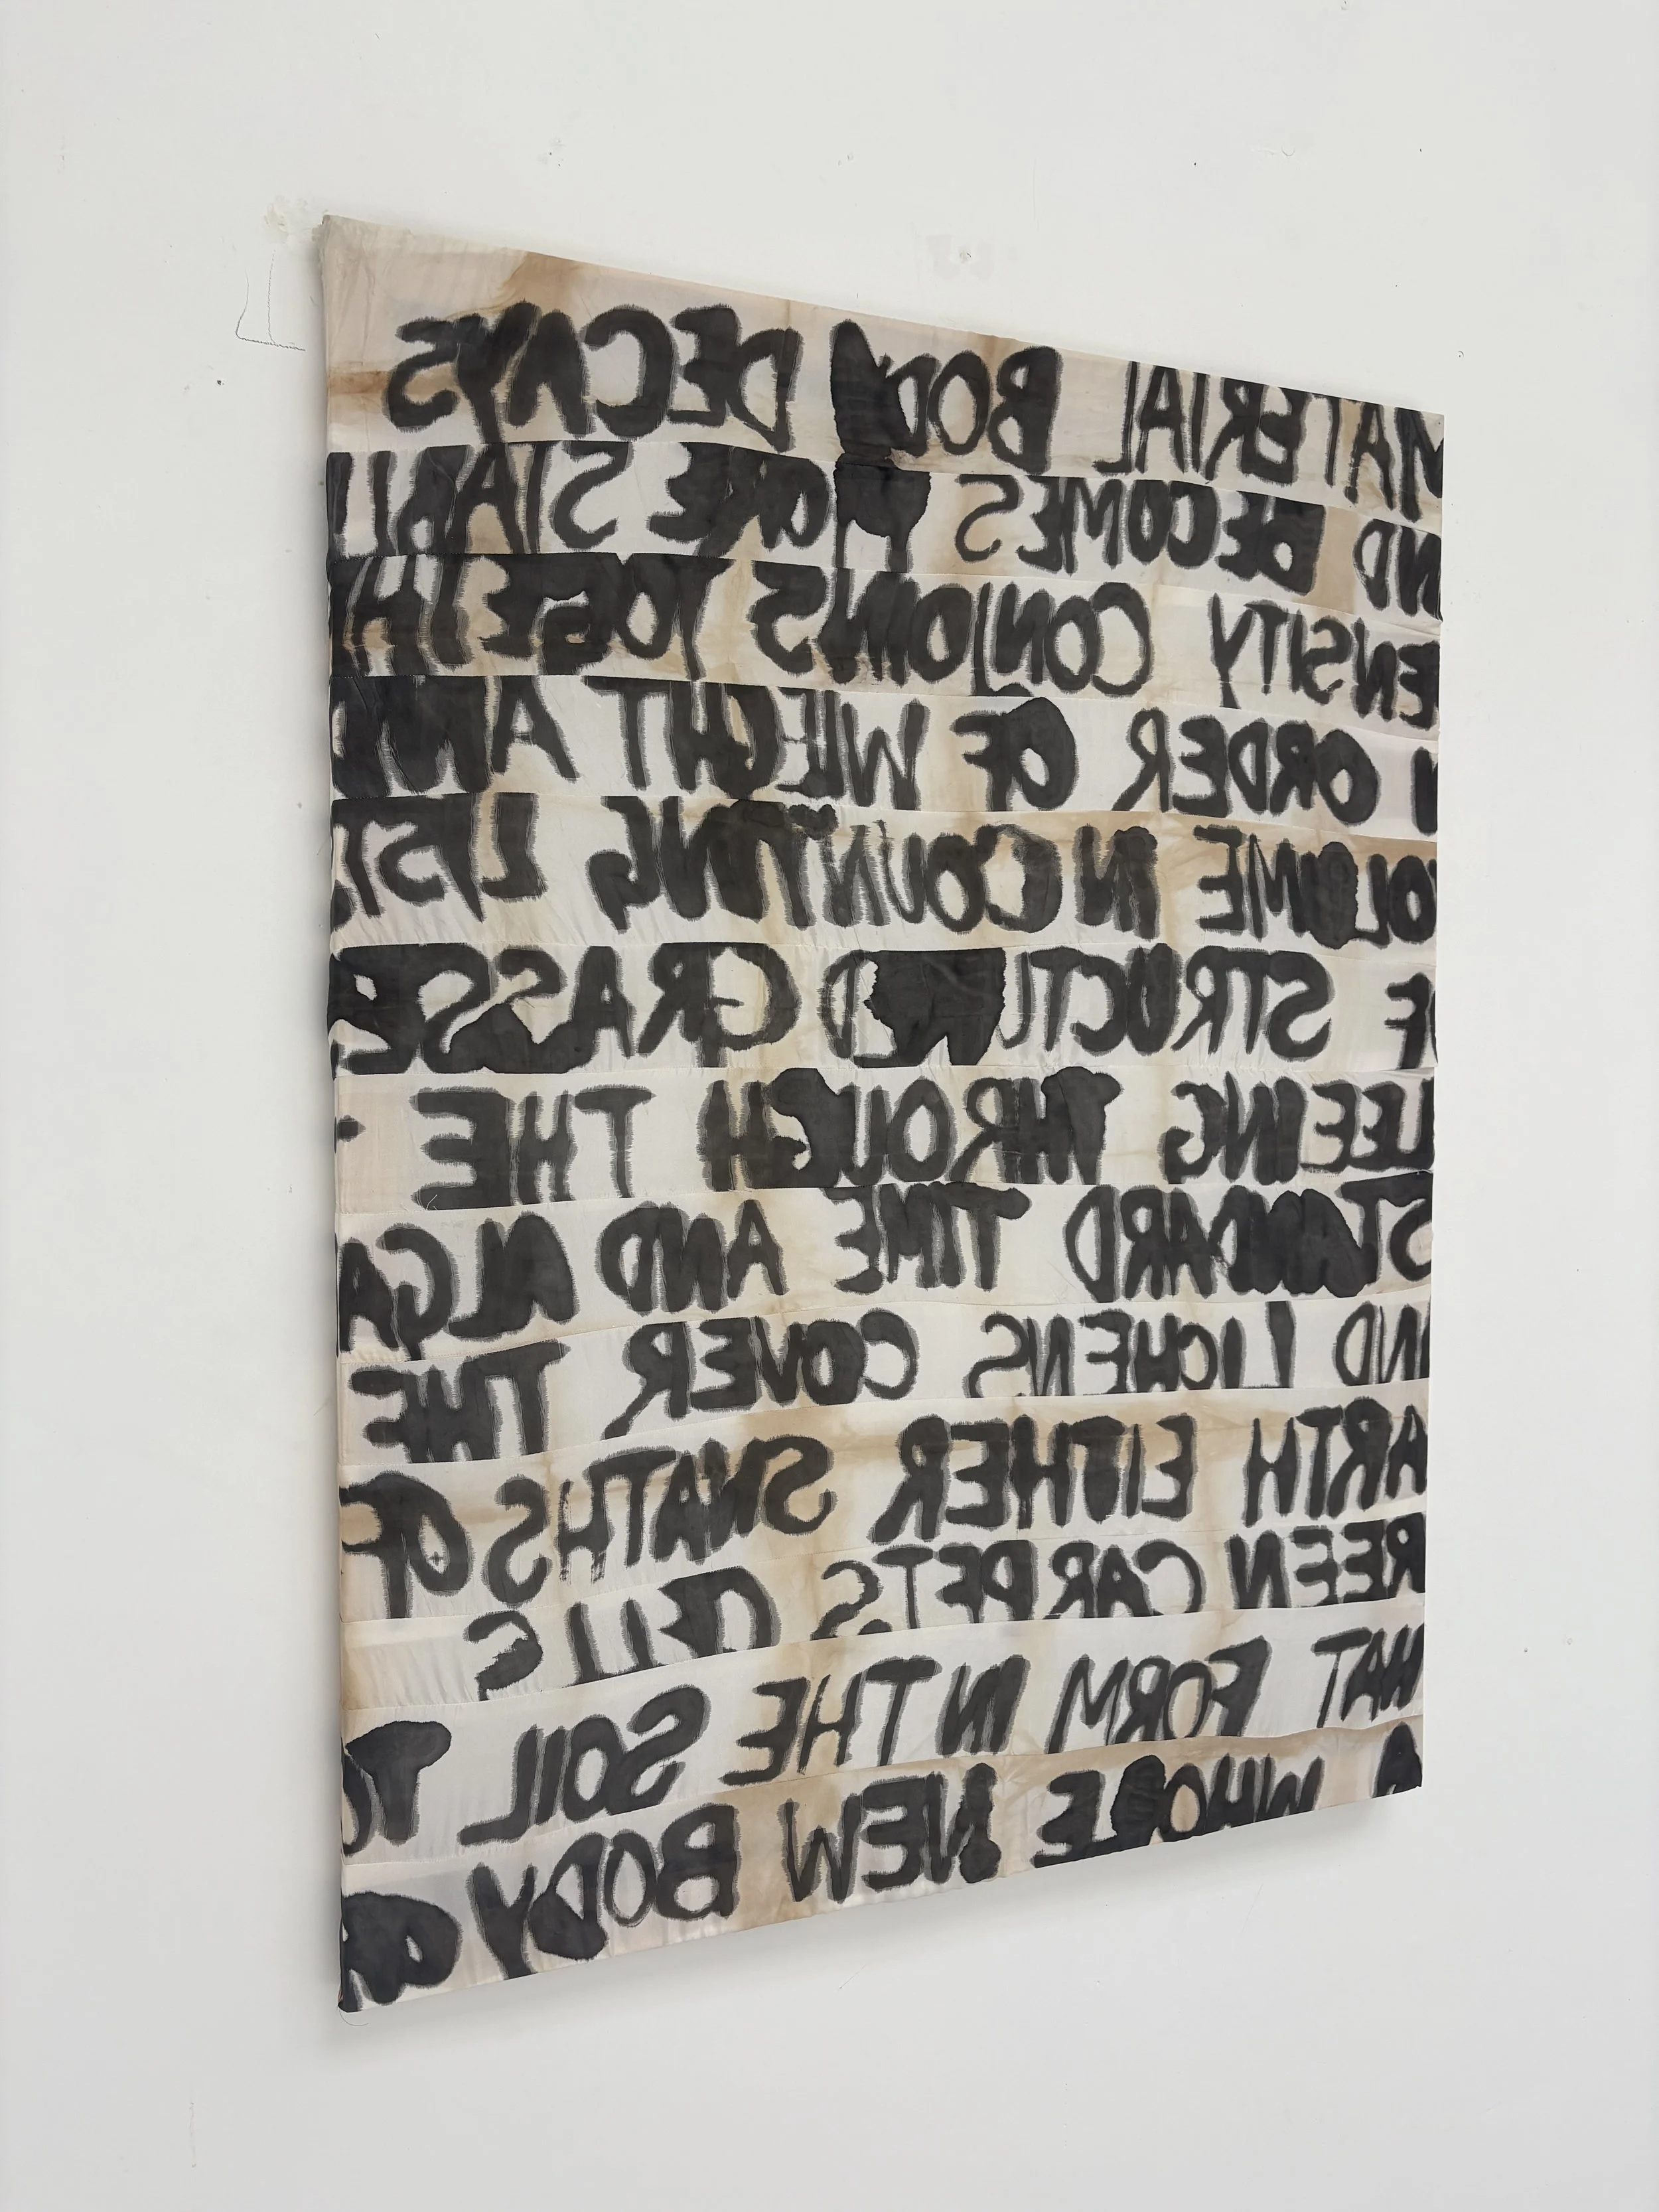 MATERIAL BODY DECAYS
ND BECOMES MORE STABIL
ENSITY CONJOINS TOGETHE
N ORDER OF WIEGHT AND
VOLUME IN COUNTING LIST
OF STRUCTURED GRASSES
LEEING THROUGH THE
STANDARD TIME AND ALGA
AND LICHENS COVER THE
ARTH EITHER SWATHS OF
REEN CARPETS CELLS
HAT FORM IN THE SOIL TO
A WHOLE NEW BODY OR